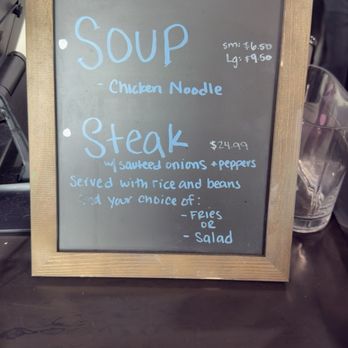 SOUP
sm: $6.50
Lg: $9.50
- Chicken Noodle
Steak $24.99
w/ sauteed onions + peppers
Served with rice and beans
your choice of:
- FRIES
OR
- Salad